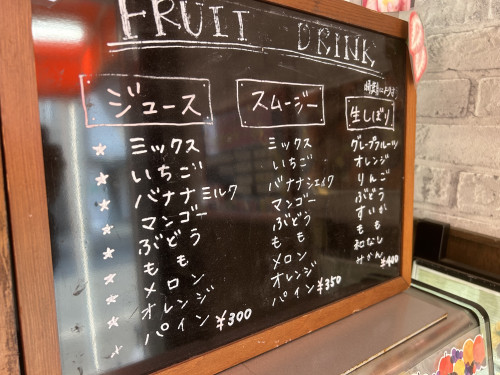 FRUIT DRINK
ジュース
★ ミックス
★ いちご
★ バナナミルク
★ マンゴー
★ ぶどう
★ もも
★ メロン
★ オレンジ
★ パイン ¥300
スムージー
ミックス
いちご
バナナシェイク
マンゴー
ぶどう
もも
メロン
オレンジ
パイン ¥350
生しぼり
グレープフルーツ
オレンジ
りんご
ぶどう
すいか
もも
和なし
みかん ¥400